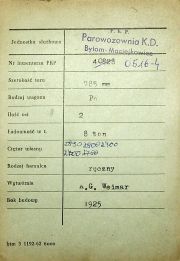 P. K. P.
Jednostka służbowa Parowozownia K.D.
Bytom-Maciejkowice
Nr inwentarza PKP 0516-4
Szerokość toru 785 mm
Rodzaj wagonu
Ilość osi 2
Ładowność w t. 8 ton
Ciężar własny
2700 2750
Rodzaj hamulca ręczny
Wytwórnia a.G. Weimar
Rok budowy 1925